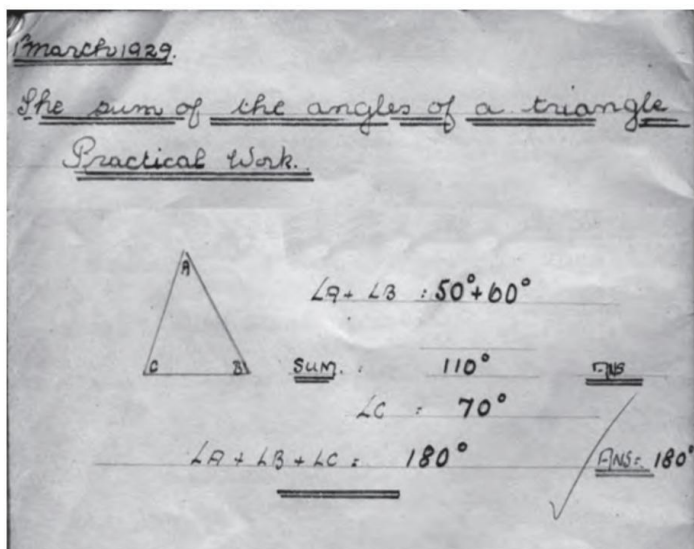 1 March 1929.
The sum of the angles of a triangle
Practical Work.
A
∠A + ∠B = 50° + 60°
C B SUM. = 110° ANS
∠C = 70°
∠A + ∠B + ∠C = 180° ANS= 180°